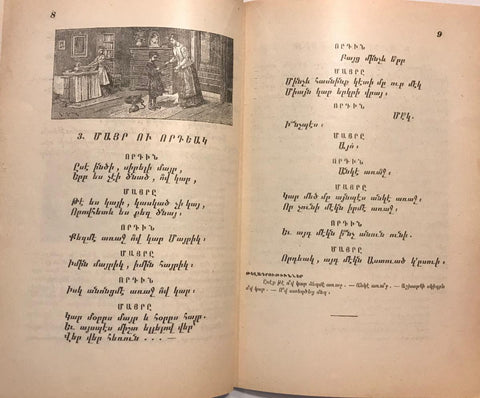 8
3. ՄԱՅՐ ՈՒ ՈՐԴԵԱԿ
ՈՐԴԻՆ
Ըսէ ինծի, սիրելի մայր,
Երբ ես չէի ծնած, ո՞վ կար,
ՄԱՅՐԸ
Թէ ես կայի, կասկած չի կայ,
Որովհետև ես քեզ ծնայ։
ՈՐԴԻՆ
Քեզմէ առաջ ո՞վ կար Մայրիկ։
ՄԱՅՐԸ
Իմին մայրիկ, իմին հայրիկ։
ՈՐԴԻՆ
Իսկ անոնցմէ առաջ ո՞վ կար։
ՄԱՅՐԸ
Կար մօրըս մայր և հօրըս հայր.
Եւ այսպէս միշտ ելլելով վեր
Վեր վեր հեռուն . . . —
9
ՈՐԴԻՆ
Բայց մինչև երբ
ՄԱՅՐԸ
Մինչև հասնինք կէտի մը ուր մէկ
Միայն կար երկրի վրայ։
ՈՐԴԻՆ
Մէկ։
Ի՞նչպէս։
ՄԱՅՐԸ
Այո՛։
ՈՐԴԻՆ
Անկէ առա՞ջ։
ՄԱՅՐԸ
Կար մեծ մը այնպէս անկէ առաջ։
Որ չունի մէկն իրմէ առաջ։
ՈՐԴԻՆ
Եւ այդ մէկն ի՞նչ անուն ունի։
ՄԱՅՐԸ
Որդեակ, այդ մէկն Աստուած կ՚ըսուի։
Ըսէք թէ ո՞վ կար ձեզմէ առաջ. — Անկէ առաջ. — Աշխարհի սկիզբն
ո՞վ կար. — Ո՞վ ստեղծեց մեզ.